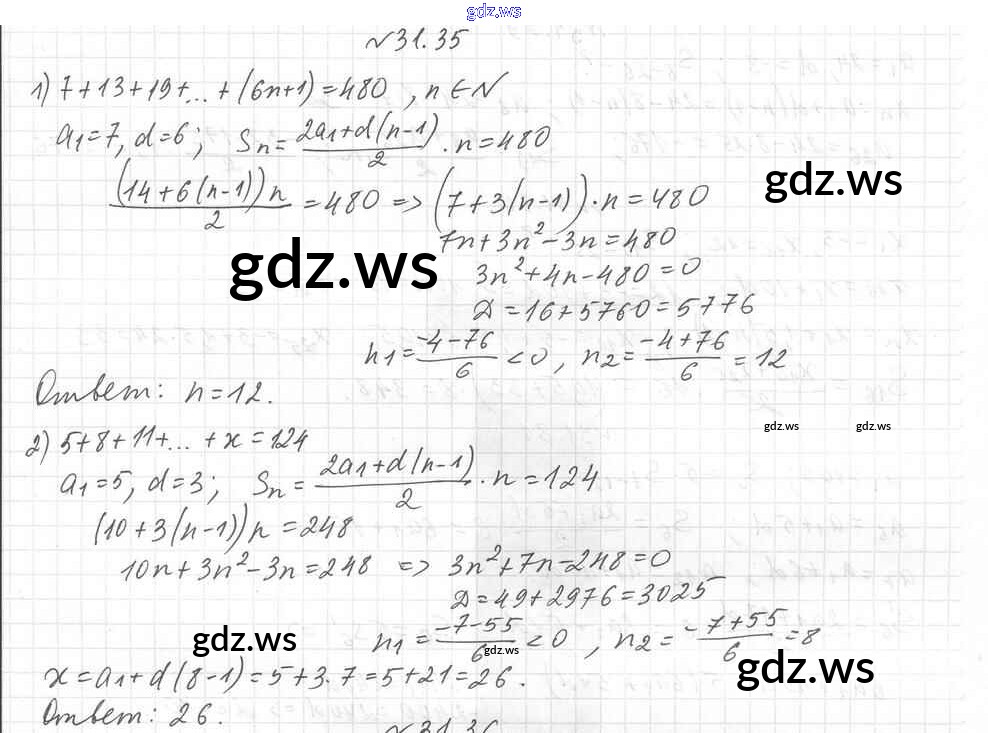 gdz.ws
№31.35
1) 7+13+19+...+(6n+1)=480, n∈N
a₁=7, d=6; Sₙ= (2a₁+d(n-1))/2 · n=480
((14+6(n-1))n)/2 =480 => (7+3(n-1))·n=480
gdz.ws
7n+3n²-3n=480
gdz.ws
3n²+4n-480=0
Д=16+5760=5776
n₁= (-4-76)/6 <0, n₂= (-4+76)/6 =12
Ответ: n=12.
gdz.ws gdz.ws
2) 5+8+11+...+x=124
a₁=5, d=3; Sₙ= (2a₁+d(n-1))/2 · n=124
(10+3(n-1))n=248
10n+3n²-3n=248 => 3n²+7n-248=0
Д=49+2976=3025
n₁= (-7-55)/6 <0, n₂= (-7+55)/6 =8
gdz.ws gdz.ws gdz.ws
x=a₁+d(8-1)=5+3·7=5+21=26.
Ответ: 26.
№31.36